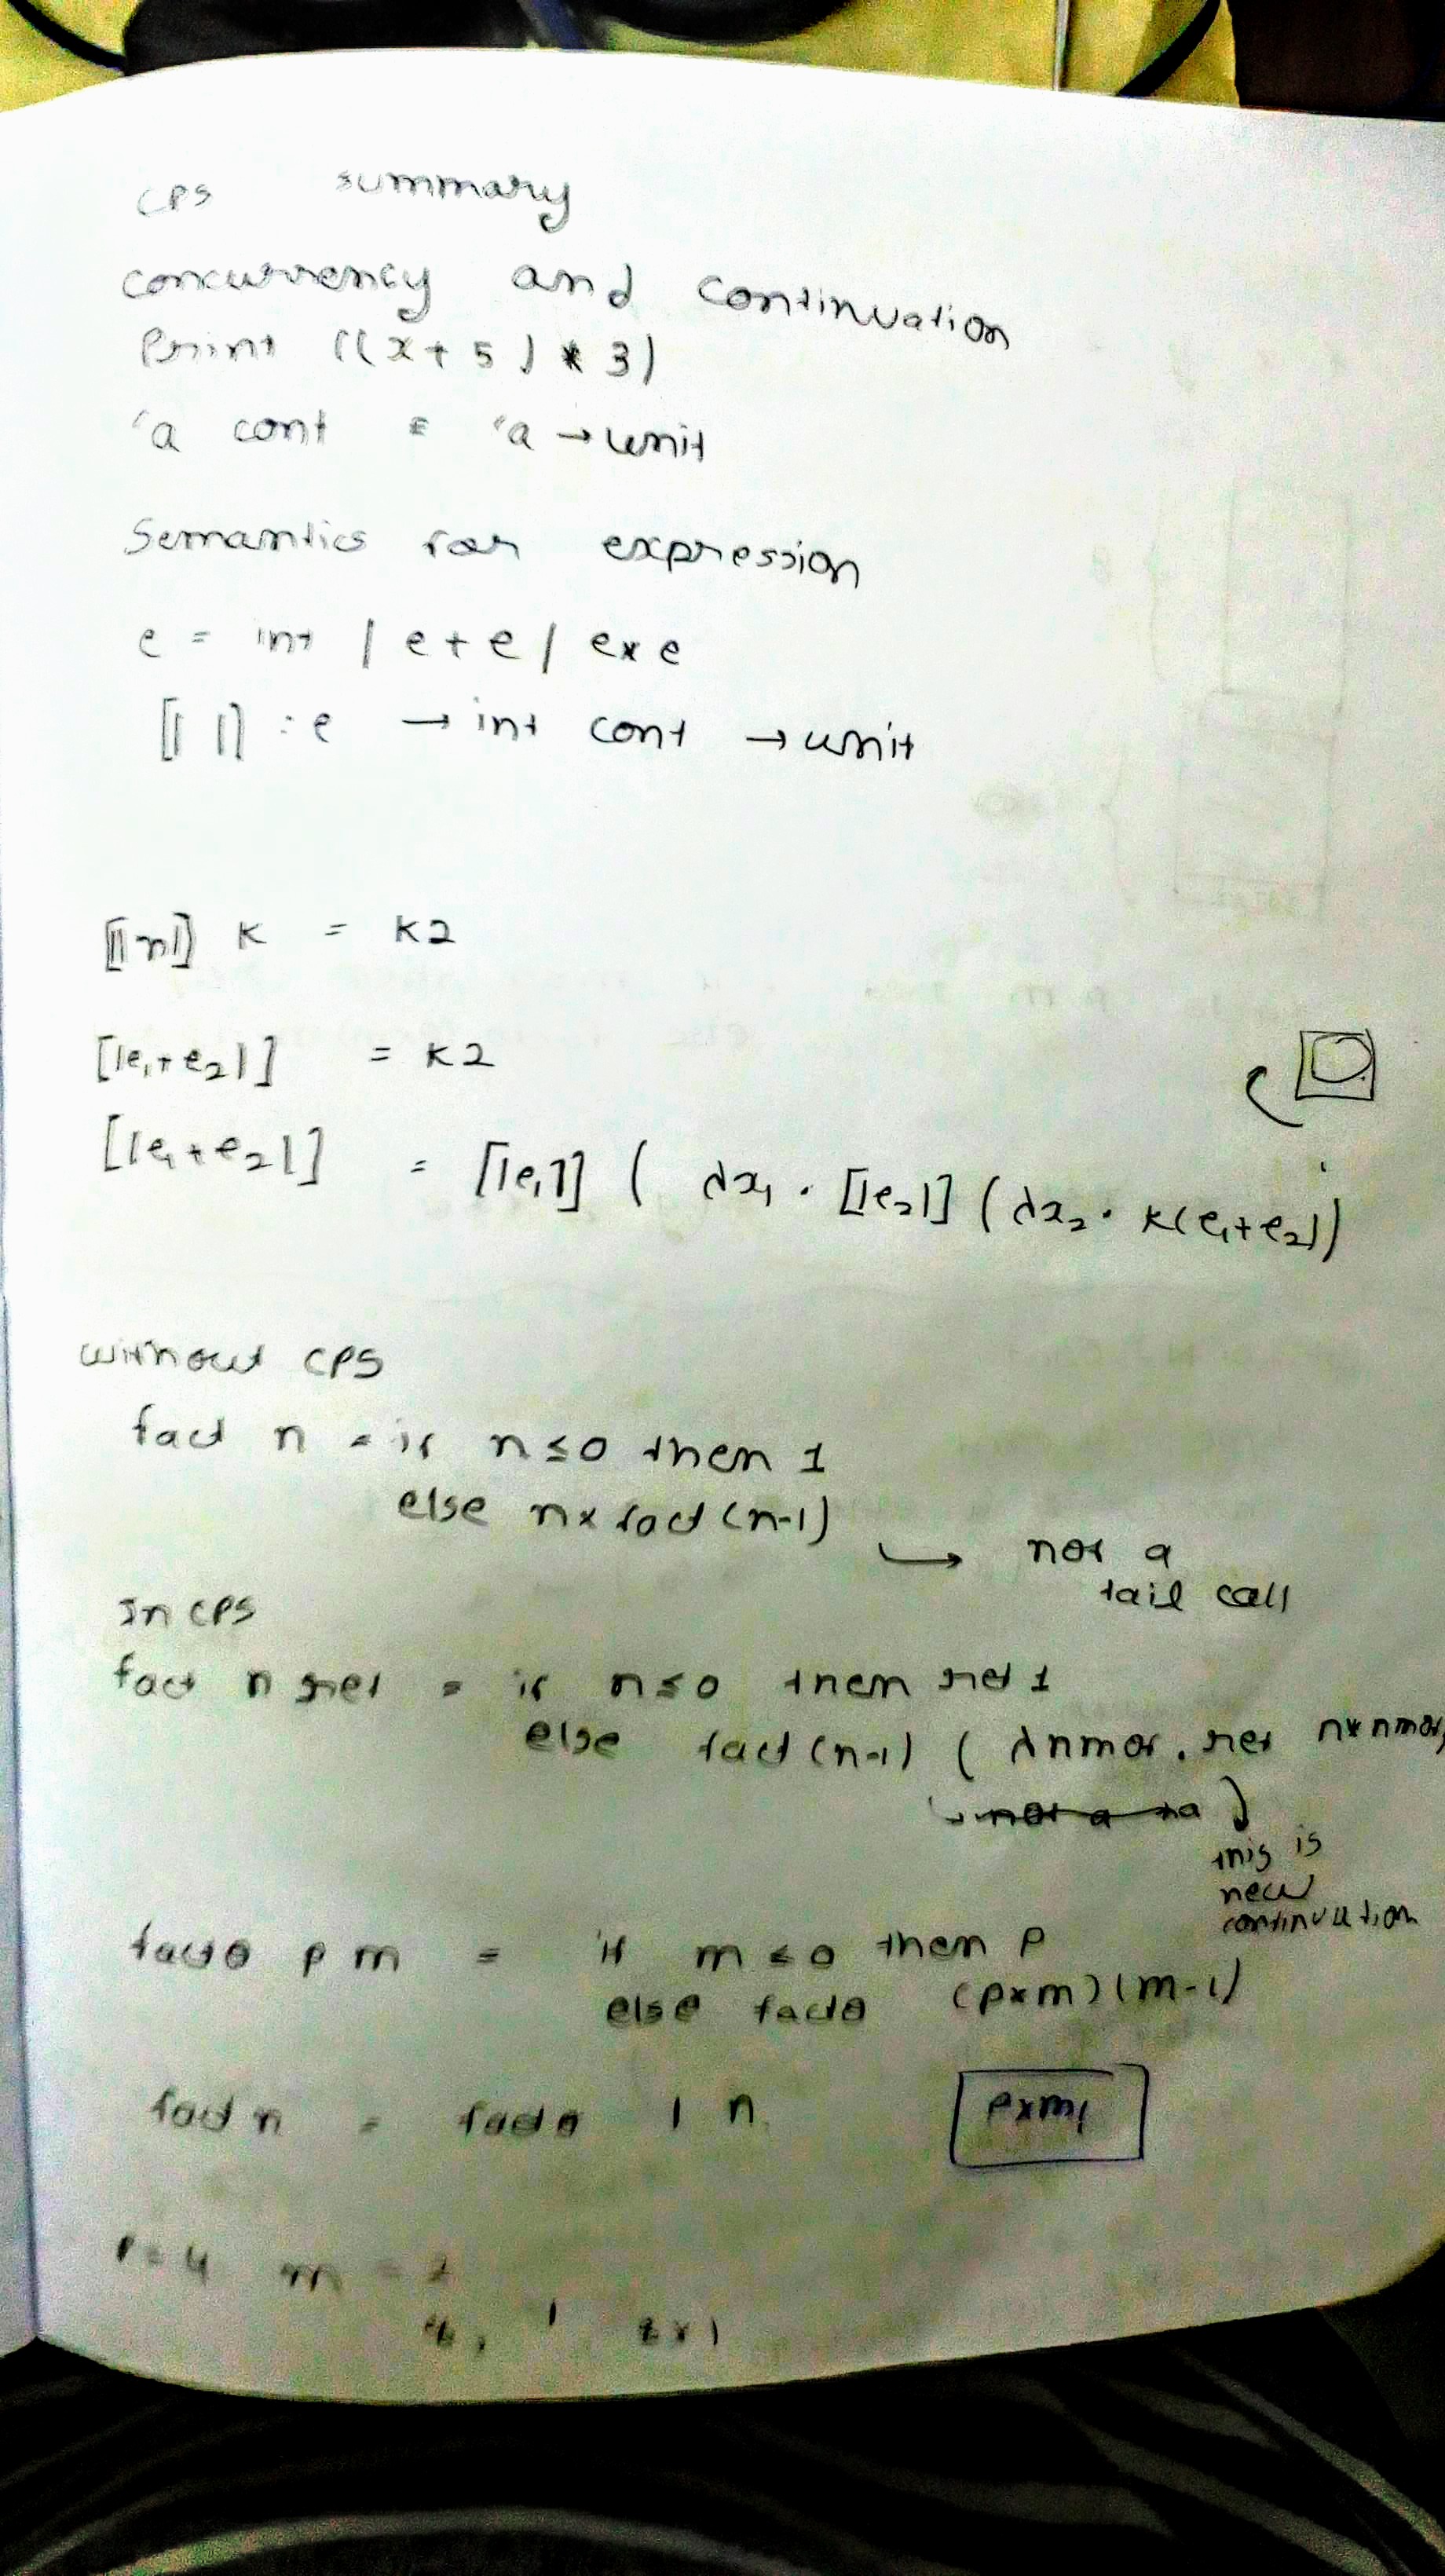 CPS summary
concurrency and continuation
Print ((x + 5) * 3)
'a cont = 'a → unit
Semantics for expression
e = int | e + e | e * e
[| |] : e → int cont → unit
[|n|] K = K2
[|e₁ + e₂|] = K2
[|e₁ + e₂|] = [|e₁|] ( λx₁ . [|e₂|] (λx₂ . K(e₁+e₂))
without CPS
fact n = if n ≤ 0 then 1
else n * fact (n-1)
→ not a
tail call
In CPS
fact n ret = if n ≤ 0 then ret 1
else fact (n-1) ( λnmor . ret n * nmor
not a ta )
this is
new
continuation
facto p m = if m ≤ 0 then p
else facto (p*m) (m-1)
fact n = facto 1 n
p*m
p=4 m = 2